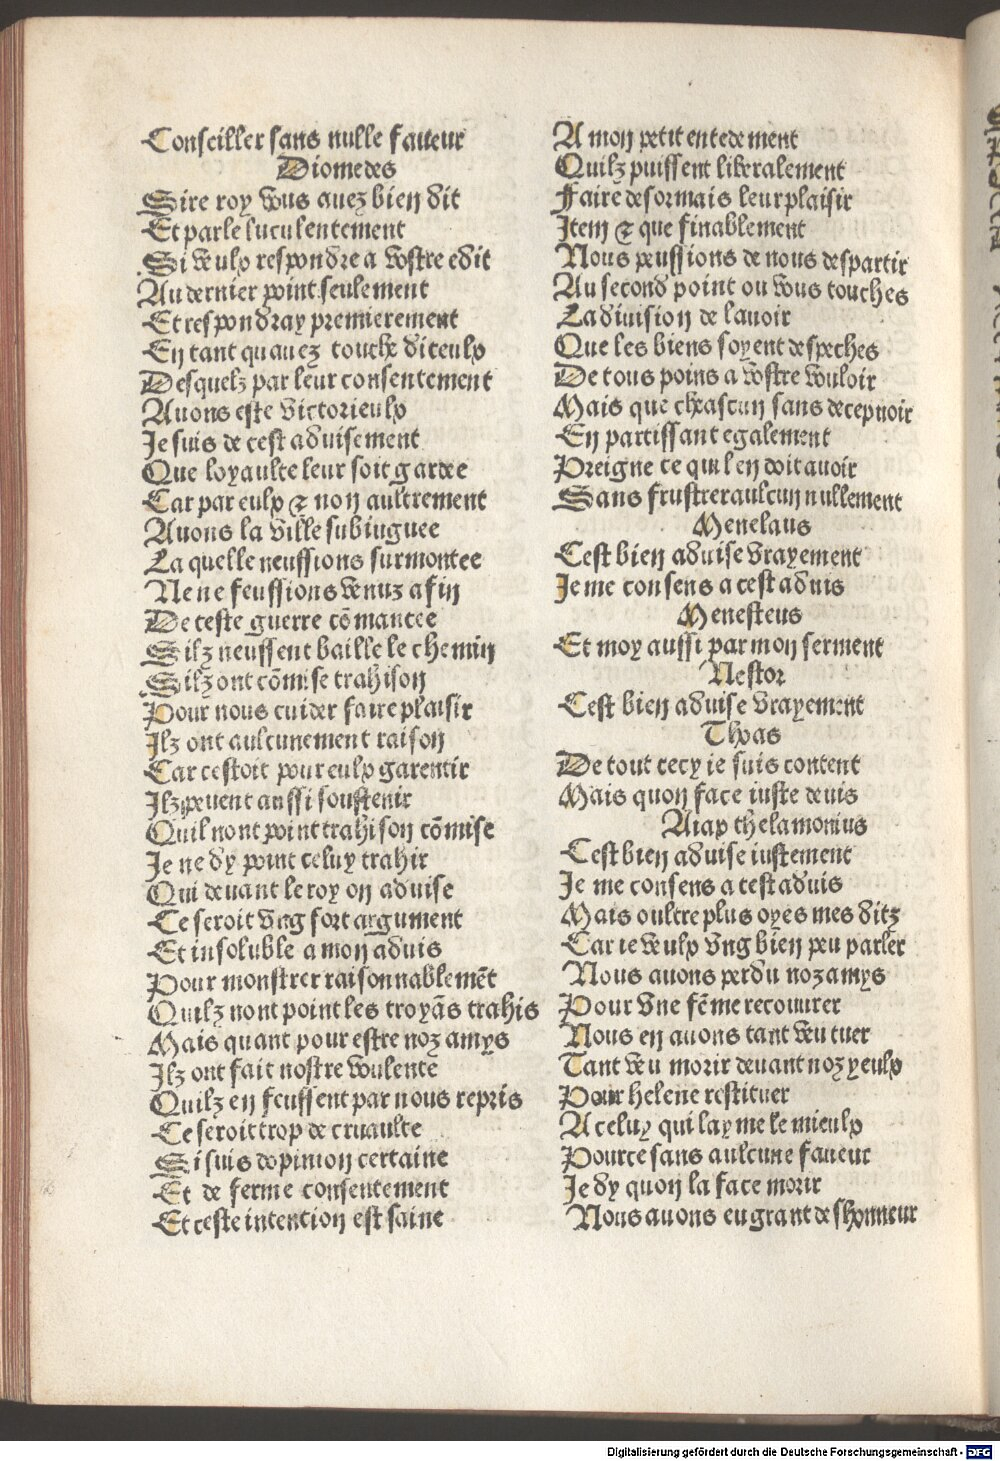 Conseiller sans nulle faueur
Diomedes
Sire roy vous auez bien dit
Et parle luculentement
Si veulx respondre a vostre edit
Au dernier point seulement
Et respondray premierement
En tant quauez touche diceulx
Desquelz par leur consentement
Auons este victorieulx
Je suis de cest aduisement
Que loyaulte leur soit gardee
Car par eulx ⁊ non aultrement
Auons la ville subiuguee
La quelle neussions surmontee
Ne ne feussions venuz a fin
De ceste guerre cōmancee
Silz neussent baille le chemin
Silz ont cōmise trahison
Pour nous cuider faire plaisir
Ilz ont aulcunement raison
Car cestoit pour eulx garentir
Ilz peuent aussi soustenir
Quil nont point trahison cōmise
Je ne dy point celuy trahir
Qui deuant le roy on aduise
Ce seroit vng fort argument
Et insoluble a mon aduis
Pour monstrer raisonnablemēt
Quilz nont point les troyās trahis
Mais quant pour estre noz amys
Ilz ont fait nostre voulente
Quilz en feussent par nous repris
Ce seroit trop de cruaulte
Si suis dopinion certaine
Et de ferme consentement
Et ceste intention est saine
A mon petit entedement
Quilz puissent liberalement
Faire desormais leur plaisir
Item ⁊ que finablement
Nous peussions de nous despartir
Au second point ou vous touches
La diuision de lauoir
Que les biens soyent despeches
De tous poins a vostre vouloir
Mais que chascun sans decepuoir
En partissant egalement
Preigne ce quil en doit auoir
Sans frustrer aulcun nullement
Menelaus
Cest bien aduise vrayement
Je me consens a cest aduis
Menesteus
Et moy aussi par mon serment
Nestor
Cest bien aduise vrayement
Thoas
De tout cecy ie suis content
Mais quon face iuste deuis
Aiax thelamonius
Cest bien aduise iustement
Je me consens a cest aduis
Mais oultre plus oyes mes ditz
Car ie veulx vng bien peu parler
Nous auons perdu noz amys
Pour vne fēme recouurer
Nous en auons tant veu tuer
Tant veu morir deuant noz yeulx
Pour helene restituer
A celuy qui layme le mieulx
Pource sans aulcune faueur
Je dy quon la face morir
Nous auons eu grant deshonneur
Digitalisierung gefördert durch die Deutsche Forschungsgemeinschaft - DFG